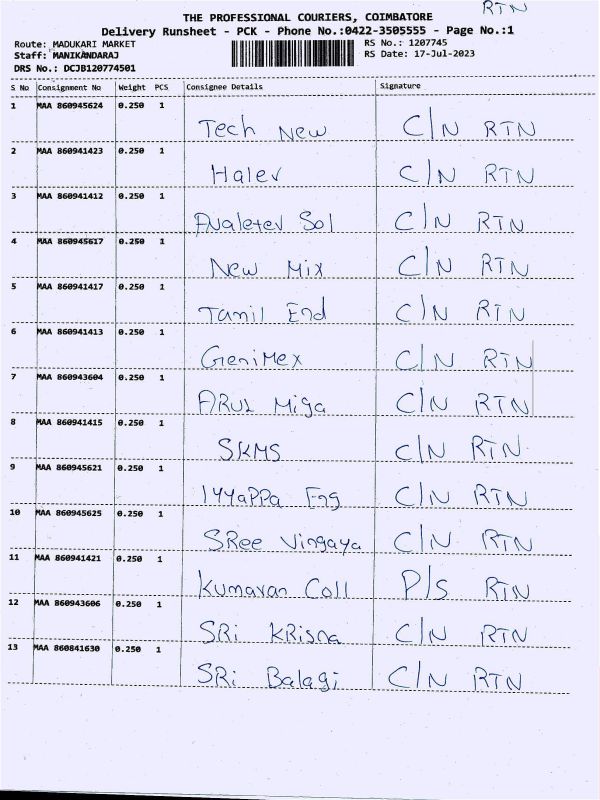 RTN
THE PROFESSIONAL COURIERS, COIMBATORE
Delivery Runsheet - PCK - Phone No.:0422-3505555 - Page No.:1
Route: MADUKARI MARKET RS No.: 1207745
Staff: MANIKANDARAJ RS Date: 17-Jul-2023
DRS No.: DCJB120774501
S No Consignment No Weight PCS Consignee Details Signature
1 MAA 860945624 0.250 1
Tech New C/N RTN
2 MAA 860941423 0.250 1
Halev C/N RTN
3 MAA 860941412 0.250 1
Sol C/N RTN
4 MAA 860945617 0.250 1
New Mix C/N RTN
5 MAA 860941417 0.250 1
Tamil End C/N RTN
6 MAA 860941413 0.250 1
GeniMex C/N RTN
7 MAA 860943604 0.250 1
ARUL Miga C/N RTN
8 MAA 860941415 0.250 1
SKMS C/N RTN
9 MAA 860945621 0.250 1
IYYaPPa Eng C/N RTN
10 MAA 860945625 0.250 1
SRee Vingaya C/N RTN
11 MAA 860941421 0.250 1
Kumaran Coll P/S RTN
12 MAA 860943606 0.250 1
SRi KRisna C/N RTN
13 MAA 860841630 0.250 1
SRi Balagi C/N RTN